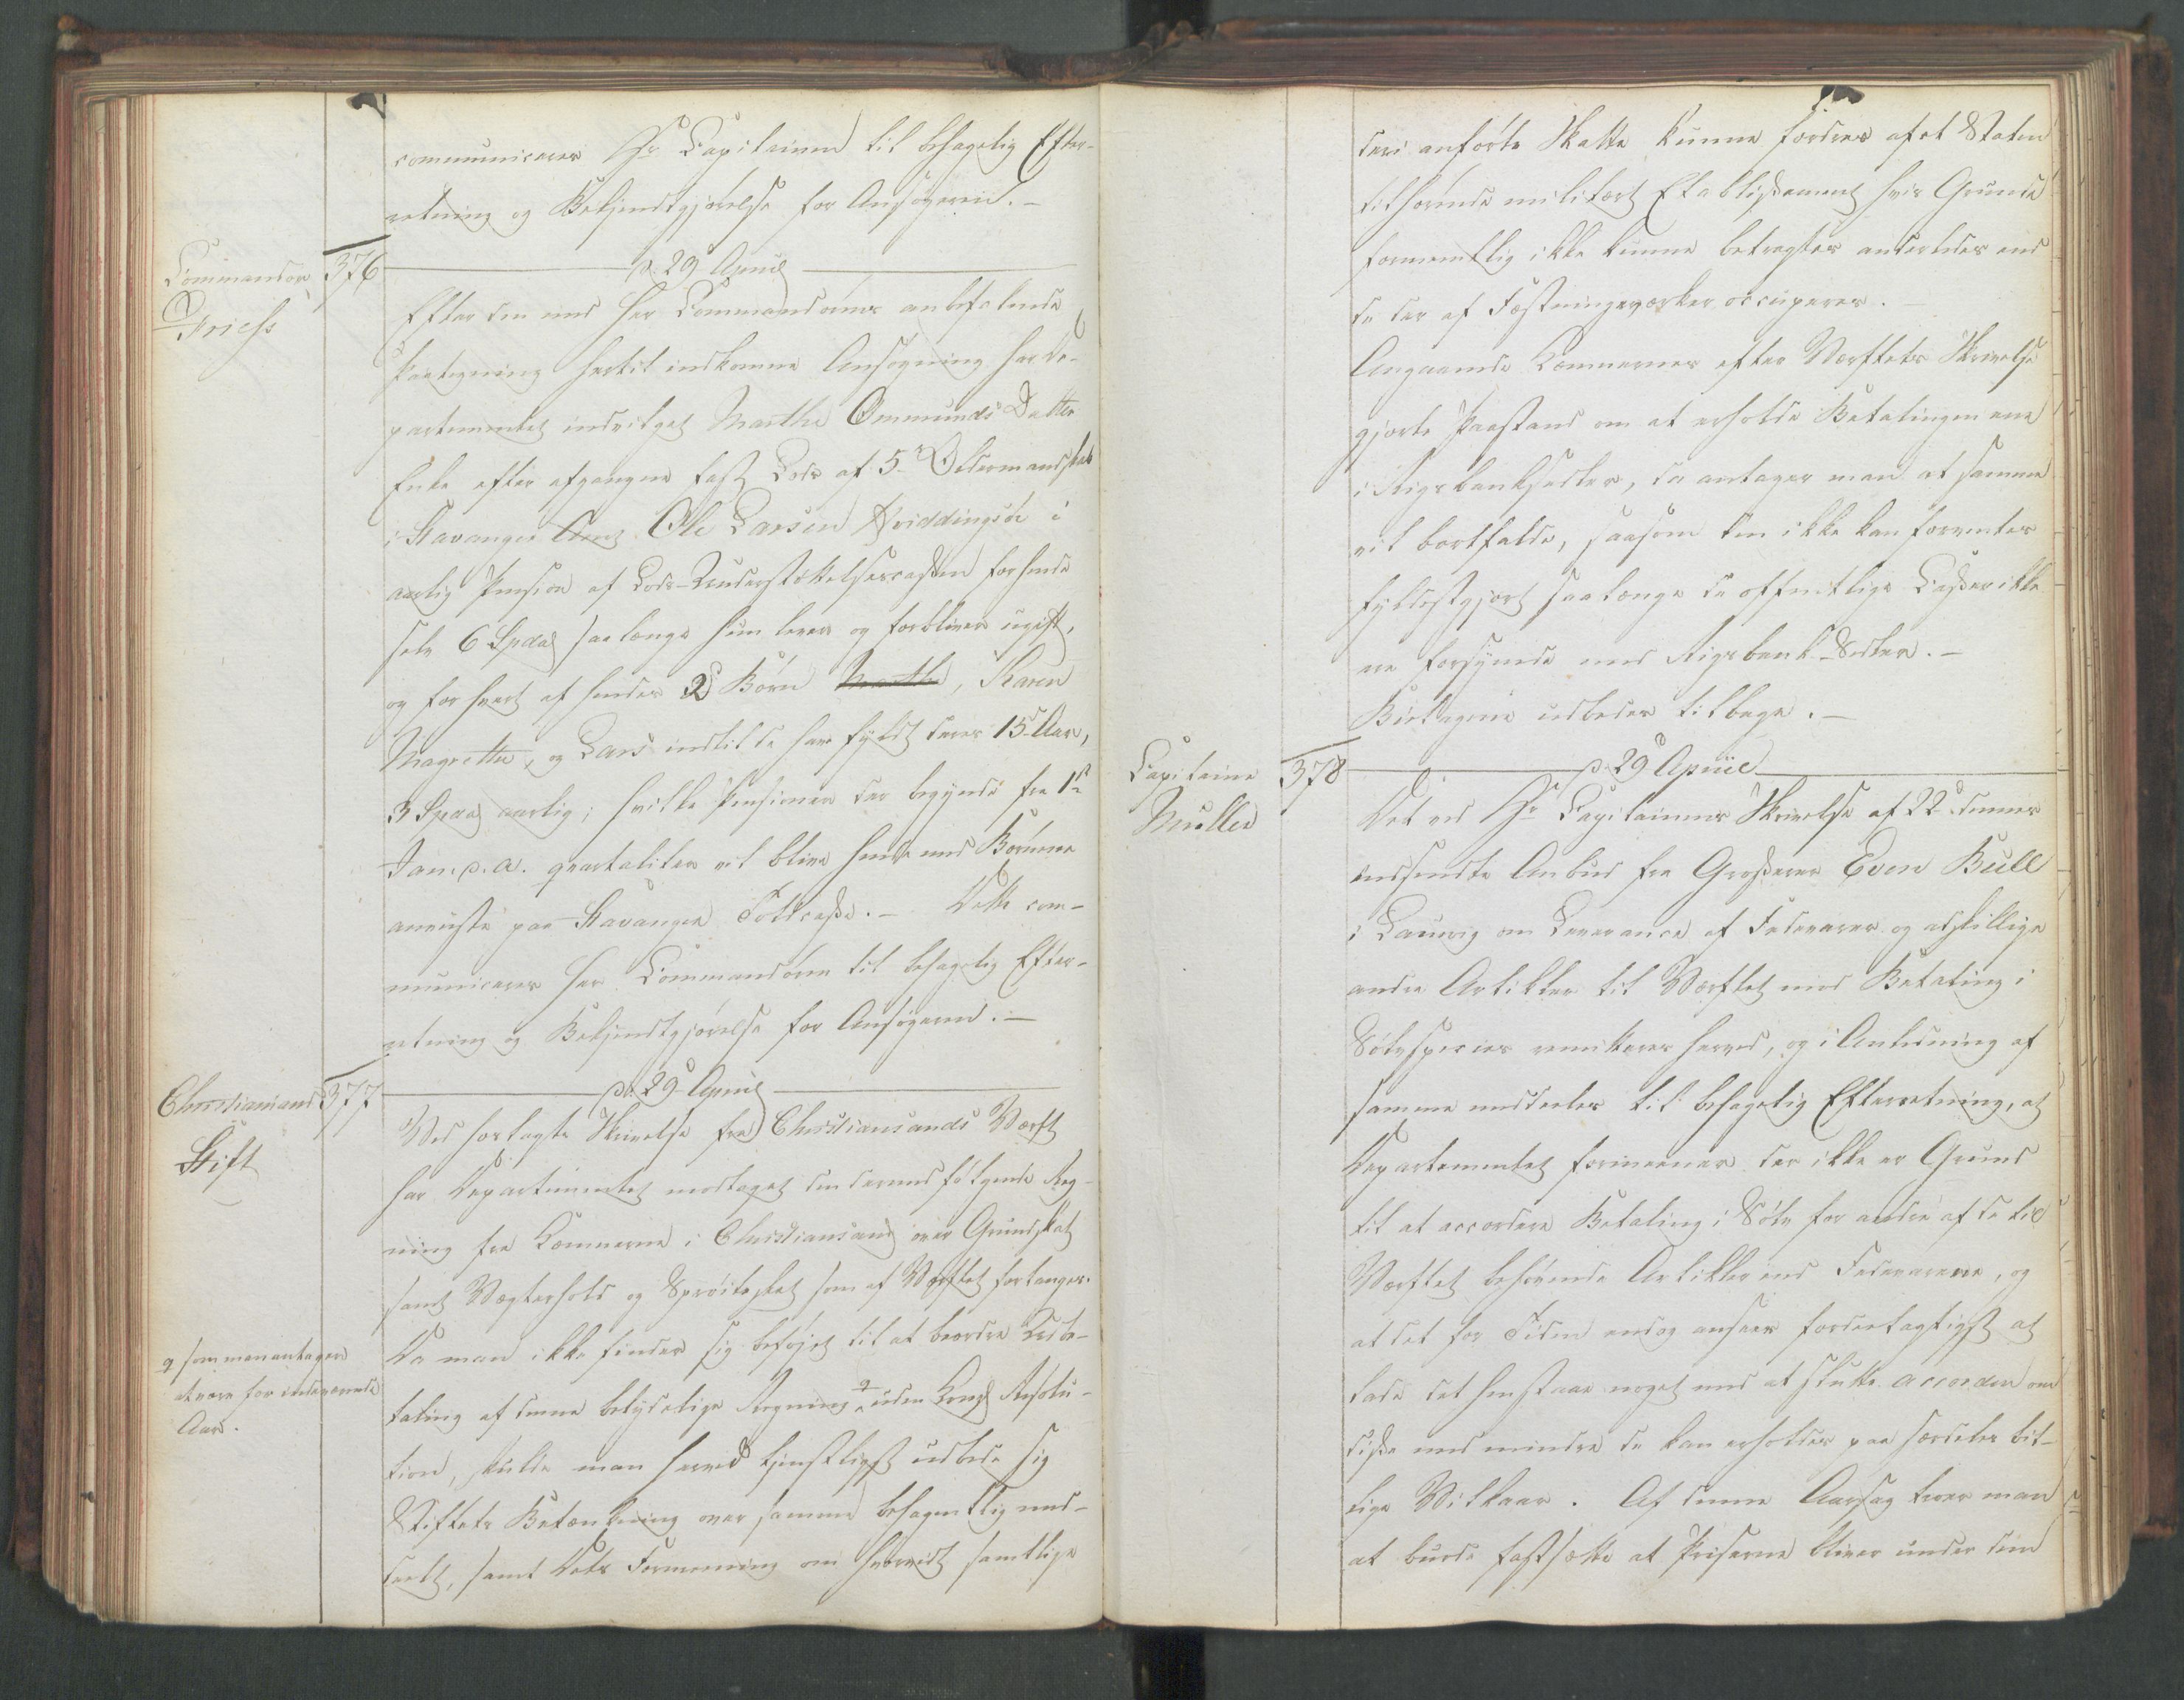 communiceres Hr Capitainen til behagelig Efter-
retning og Bekjendtgjørelse for Ansøgeren. -
Commandeur
Griess
376
d. 29 April
Efter den med Herr Commandeurens anbefalende
Paategning hertil indkomne Ansøgning har De-
partementet indvilget Marthe Ommunds Datter
Enke efter afgangne fast Lods af 5te Oldermandskab
i Stavanger Amt Ole Larsen Hviddingsøe i
aarlig Pension af Lods-Understøttelsescassen for hende
selv 6 Spd saalænge hun lever og forbliver ugift,
og for hvert af hendes 2 Børn Marthe, Karen
Magrethe, og Lars indtil de have fyldt deres 15 Aar,
3 Spd aarlig; hvilke Pensioner der begynde fra 1ste
Jan. d. a. qvartaliter vil blive hende med Børnene
anviiste paa Stavanger Toldcasse. - Dette com-
municeres Herr Commandeuren til behagelig Efter-
retning og Bekjendtgjørelse for Ansøgeren. -
Christiansand
Stift
377
d. 29 April
Ved hoslagte Skrivelse fra Christiansands Værft
har Departementet modtaget den derved følgende Reg-
ning fra Kæmneren i Christiansand over Grundskat
samt Vægterhold og Sprøiteskat som af Værftet forlanges.
Da man ikke finder sig beføjet til at beordre Udbe-
taling af denne betydelige Regning uden Kongl Resolu-
som man antager
at være for indeværende
Aar.
tion, skulde man herved tjenstligst udbede sig
Stiftets Betænkning over samme behagentlig med-
deelt, samt Dets Formening om hvorvidt samtlige
deri anførte Skatte kunne fordres af et Staten
tilhørende militært Etablissement hvis Grunde
formentlig ikke kunne betragtes anderledes end
de der af Fæstningsværker occuperes. -
Angaaende Kæmnerens efter Værftets Skrivelse
gjorte Paastand om at erholde Betalingen ene
i Rigsbanksedler, da antager man at samme
vil bortfalde, saasom den ikke kan forventes
fyldestgjort saalænge de offentlige Casser ikke
ere forsynede med Rigsbank-Sedler. -
Bielagene udbedes tilbage. -
Capitaine
Muller
378
d. 29 April
Det ved Hr Capitainens Skrivelse af 22 dennes
indsendte Anbud fra Grosserer Even Bull
i Laurvig om Leverance af Fedevarer og adskillige
andre Artikler til Værftet mod Betaling i
Sølvspecies remitteres herved, og i Anledning af
samme meddeles til behagelig Efterretning, at
Departementet formeener der ikke er Grund
til at accordere Betaling i Sølv for andre af de til
Værftet behøvende Artikler end Fedevarene, og
at det for Tiden endog ansees fordeelagtigst at
lade det henstaae noget med at slutte accorden om
disse med mindre de kan erholdes paa særdeles bil-
lige Vilkaar. Af denne Aarsag troer man
at burde fastsætte at Priserne bliver under den